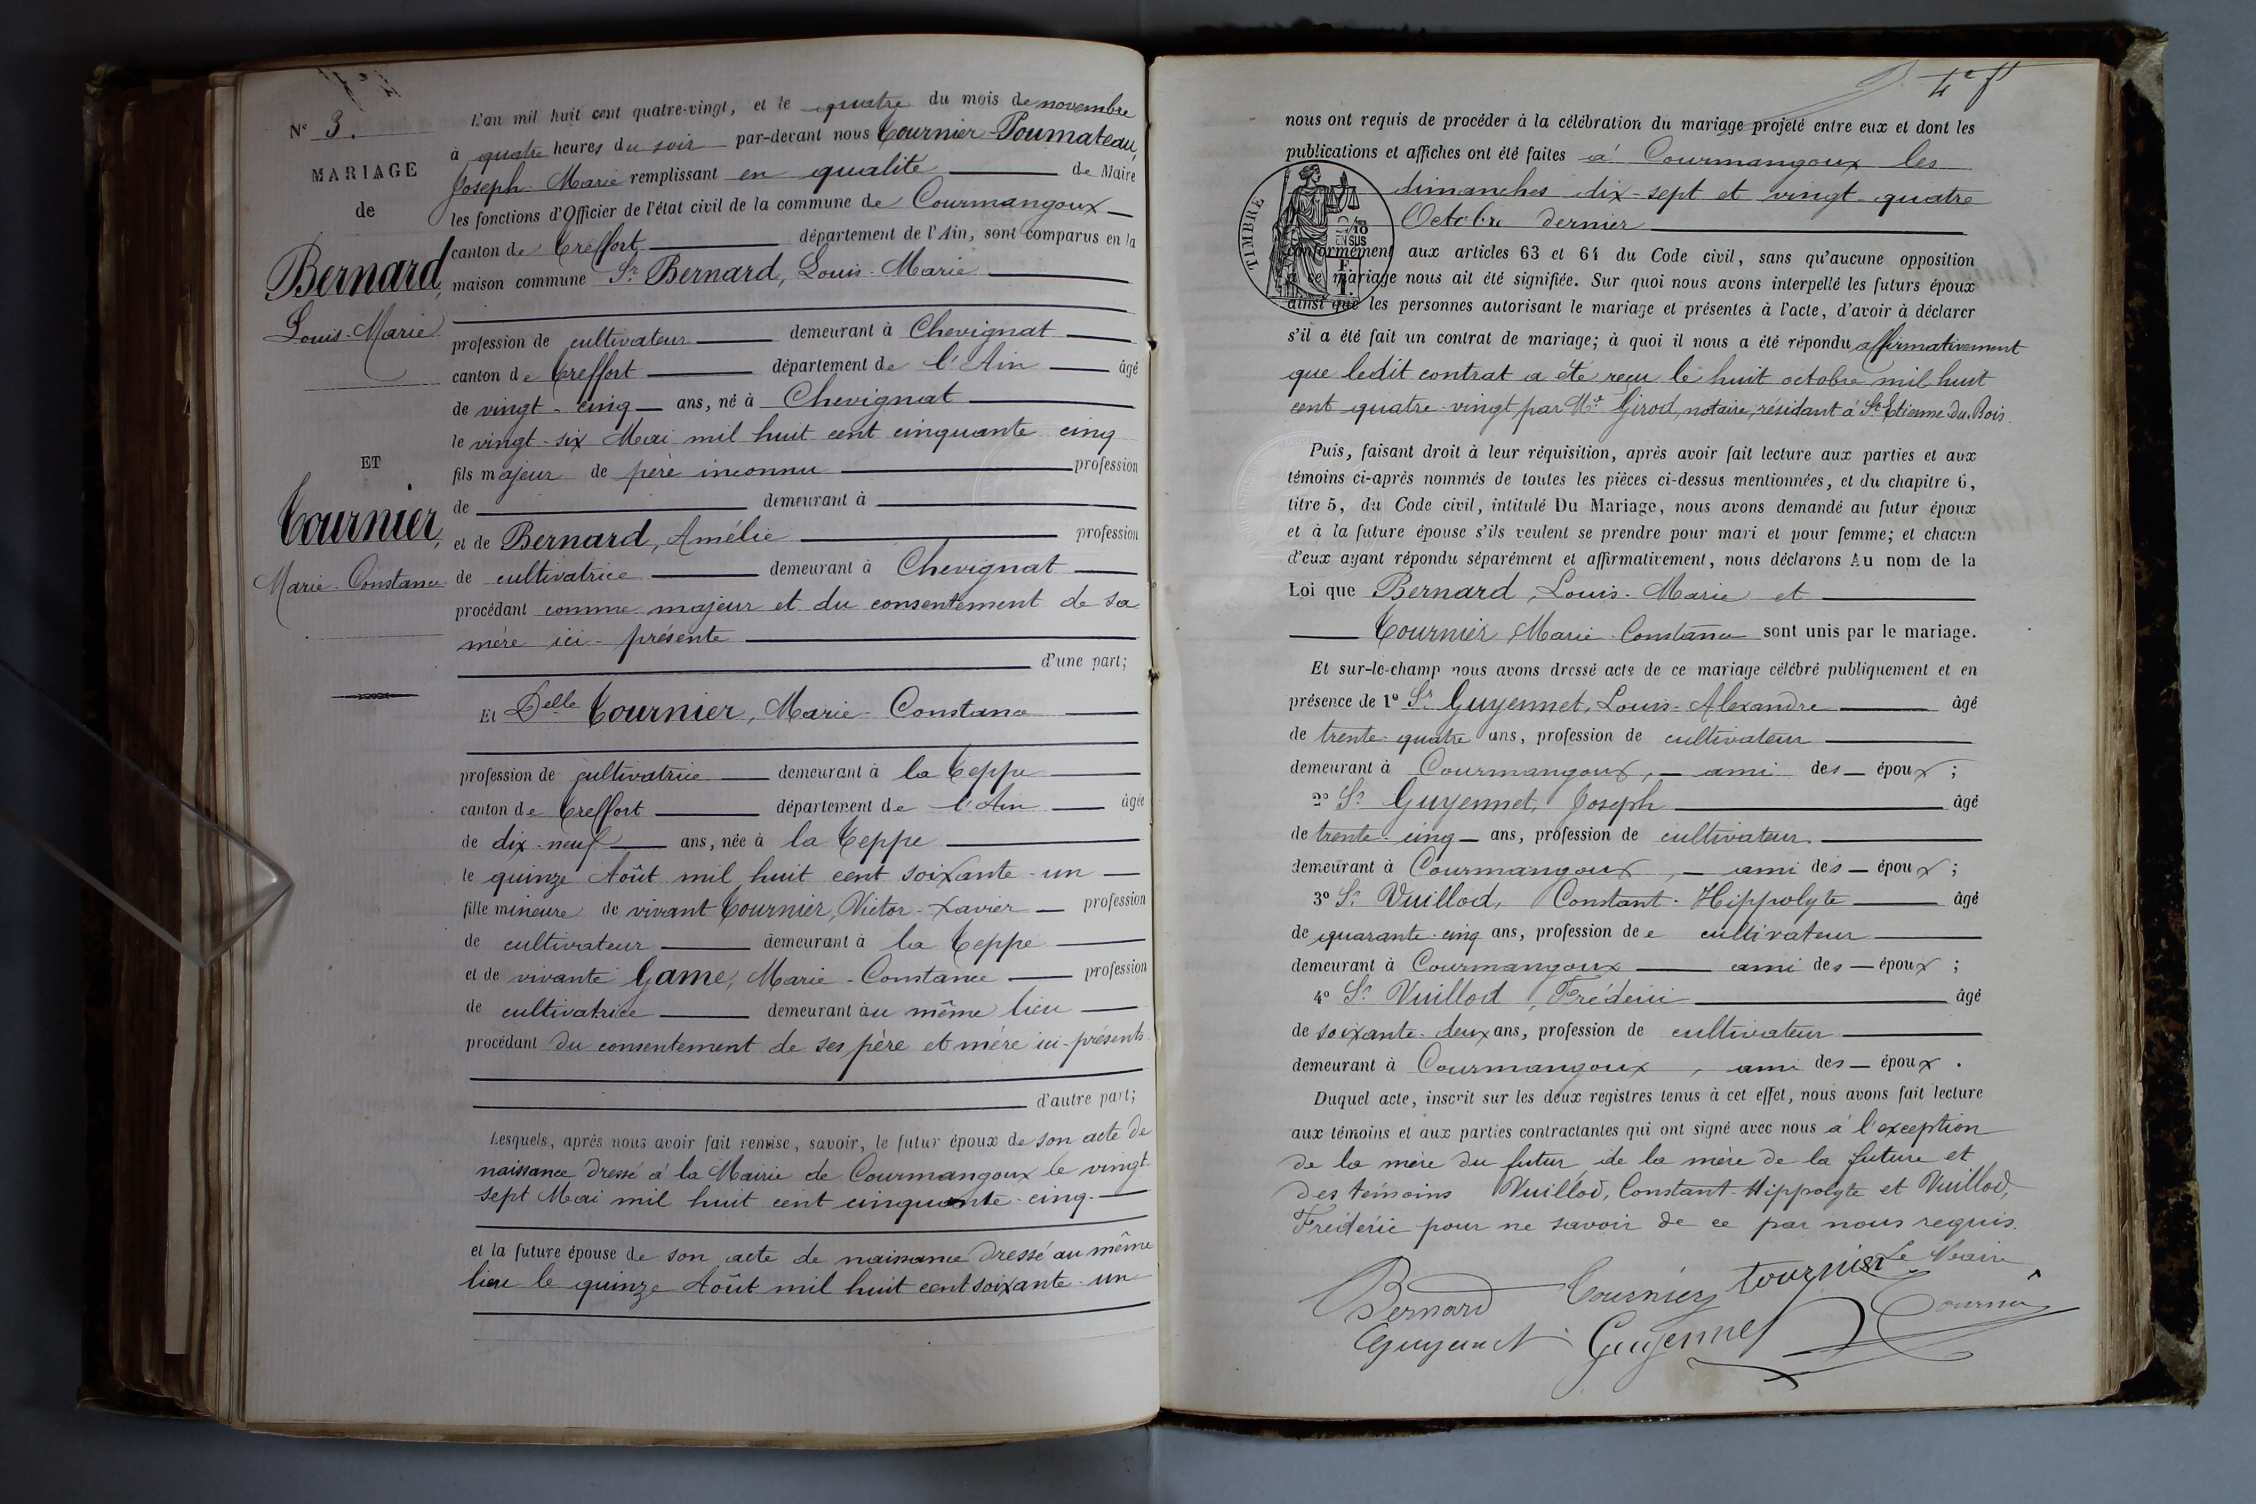 N° 3.
MARIAGE
de
Bernard,
Louis-Marie
ET
Tournier,
Marie-Constance
L'an mil huit cent quatre-vingt, et le quatre du mois de novembre
à quatre heures du soir par-devant nous Tournier-Poumateau,
Joseph-Marie remplissant en qualité de Maire
les fonctions d'Officier de l'état civil de la commune de Courmangoux
canton de Treffort département de l'Ain, sont comparus en la
maison commune Sr Bernard, Louis-Marie
profession de cultivateur demeurant à Chevignat
canton de Treffort département de l'Ain âgé
de vingt-cinq ans, né à Chevignat
le vingt-six Mai mil huit cent cinquante cinq
fils majeur de père inconnu profession
de demeurant à
et de Bernard, Amélie profession
de cultivatrice demeurant à Chevignat
procédant comme majeur et du consentement de sa
mère ici-présente
d'une part;
Et Delle Tournier, Marie-Constance
profession de cultivatrice demeurant à la Teppe
canton de Treffort département de l'Ain âgée
de dix-neuf ans, née à la Teppe
le quinze Août mil huit cent soixante-un
fille mineure de vivant Tournier, Victor-Xavier profession
de cultivateur demeurant à la Teppe
et de vivante Game, Marie-Constance profession
de cultivatrice demeurant au même lieu
procédant du consentement de ses père et mère ici-présents
d'autre part;
Lesquels, après nous avoir fait remise, savoir, le futur époux de son acte de
naissance dressé à la Mairie de Courmangoux le vingt-
sept Mai mil huit cent cinquante-cinq
et la future épouse de son acte de naissance dressé au même
lieu le quinze Août mil huit cent soixante-un
4e ft
nous ont requis de procéder à la célébration du mariage projeté entre eux et dont les
publications et affiches ont été faites à Courmangoux les
dimanches dix-sept et vingt-quatre
Octobre dernier
TIMBRE
2/10
EN SUS
conformément aux articles 63 et 64 du Code civil, sans qu'aucune opposition
à ce mariage nous ait été signifiée. Sur quoi nous avons interpellé les futurs époux
ainsi que les personnes autorisant le mariage et présentes à l'acte, d'avoir à déclarer
s'il a été fait un contrat de mariage; à quoi il nous a été répondu affirmativement
que ledit contrat a été reçu le huit octobre mil huit
cent quatre-vingt par Me Girod, notaire, résidant à St Etienne du Bois.
Puis, faisant droit à leur réquisition, après avoir fait lecture aux parties et aux
témoins ci-après nommés de toutes les pièces ci-dessus mentionnées, et du chapitre 6,
titre 5, du Code civil, intitulé Du Mariage, nous avons demandé au futur époux
et à la future épouse s'ils veulent se prendre pour mari et pour femme; et chacun
d'eux ayant répondu séparément et affirmativement, nous déclarons Au nom de la
Loi que Bernard, Louis-Marie et
Tournier, Marie-Constance sont unis par le mariage.
Et sur-le-champ nous avons dressé acte de ce mariage célébré publiquement et en
présence de 1° Sr Guyennet, Louis-Alexandre âgé
de trente-quatre ans, profession de cultivateur
demeurant à Courmangoux, ami des époux;
2° Sr Guyennet, Joseph âgé
de trente-cinq ans, profession de cultivateur
demeurant à Courmangoux, ami des époux;
3° Sr Vuillod, Constant-Hippolyte âgé
de quarante-cinq ans, profession de e cultivateur
demeurant à Courmangoux ami des époux;
4° Sr Vuillod, Fréderic âgé
de soixante-deux ans, profession de cultivateur
demeurant à Courmangoux, ami des époux.
Duquel acte, inscrit sur les deux registres tenus à cet effet, nous avons fait lecture
aux témoins et aux parties contractantes qui ont signé avec nous à l'exception
de la mère du futur, de la mère de la future et
des témoins Vuillod, Constant-Hippolyte et Vuillod,
Fréderic pour ne savoir de ce par nous requis.
Bernard Tournier tournier Le Maire
Guyennet Guyennet Tournier